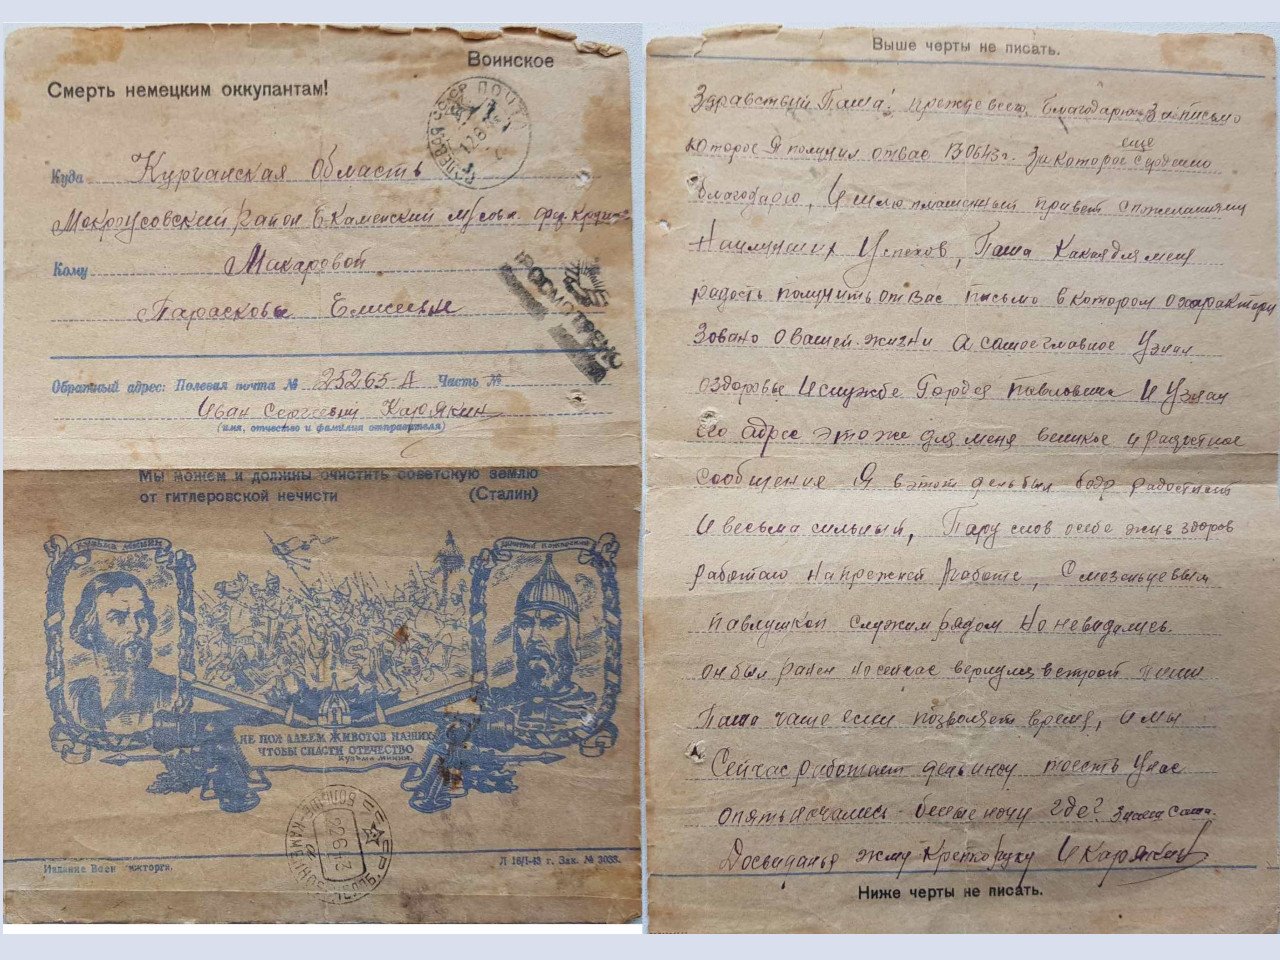 Воинское
Смерть немецким оккупантам!
ПОЛЕВАЯ ПОЧТА
Куда Курганская Область
Мокроусовский район Б Каменский
Кому Макаровой
Парасковье Елисеевне
ПРОСМОТРЕНО
Обратный адрес: Полевая почта № 25265-А Часть №
Иван Сергеевич Карякин
(имя, отчество и фамилия отправителя)
Мы можем и должны очистить советскую землю
от гитлеровской нечисти (Сталин)
КУЗЬМА МИНИН
ДМИТРИЙ ПОЖАРСКИЙ
НЕ ПОЖАЛЕЕМ ЖИВОТОВ НАШИХ,
ЧТОБЫ СПАСТИ ОТЕЧЕСТВО
КУЗЬМА МИНИН
22 6 43
Издание Воениздторга. Л 16/I-43 г. Зак. № 3033.
Выше черты не писать.
Здравствуй Паша! прежде всего Благодарю За письмо
еще
которое Я получил отвас 130643г. За которое сердечно
Благодарю, И шлю пламенный привет спожеланиями
Наилучших Успехов, Паша Какая для меня
радость получить отвас письмо в котором охарактери
Зовано о вашей жизни А самое главное Узнал
оздоровье И службе Гордея Павловича И Узнал
его адрес это же для меня великое и радостное
сообщения Я в этот день был бодр радостный
И весьма сильный, Пару слов осебе жив здоров
работаю на прежней Работе, С
Павлушкой служим рядом Но невидались.
он был ранен но сейчас вернулся встрой пиши
Паша чаще если позволяет время, и мы
Сейчас работаем день иночь тоесть Унас
опять начались белые ночи где? знает Саша.
Досвиданья жму Крепко руку И Карякин
Ниже черты не писать.